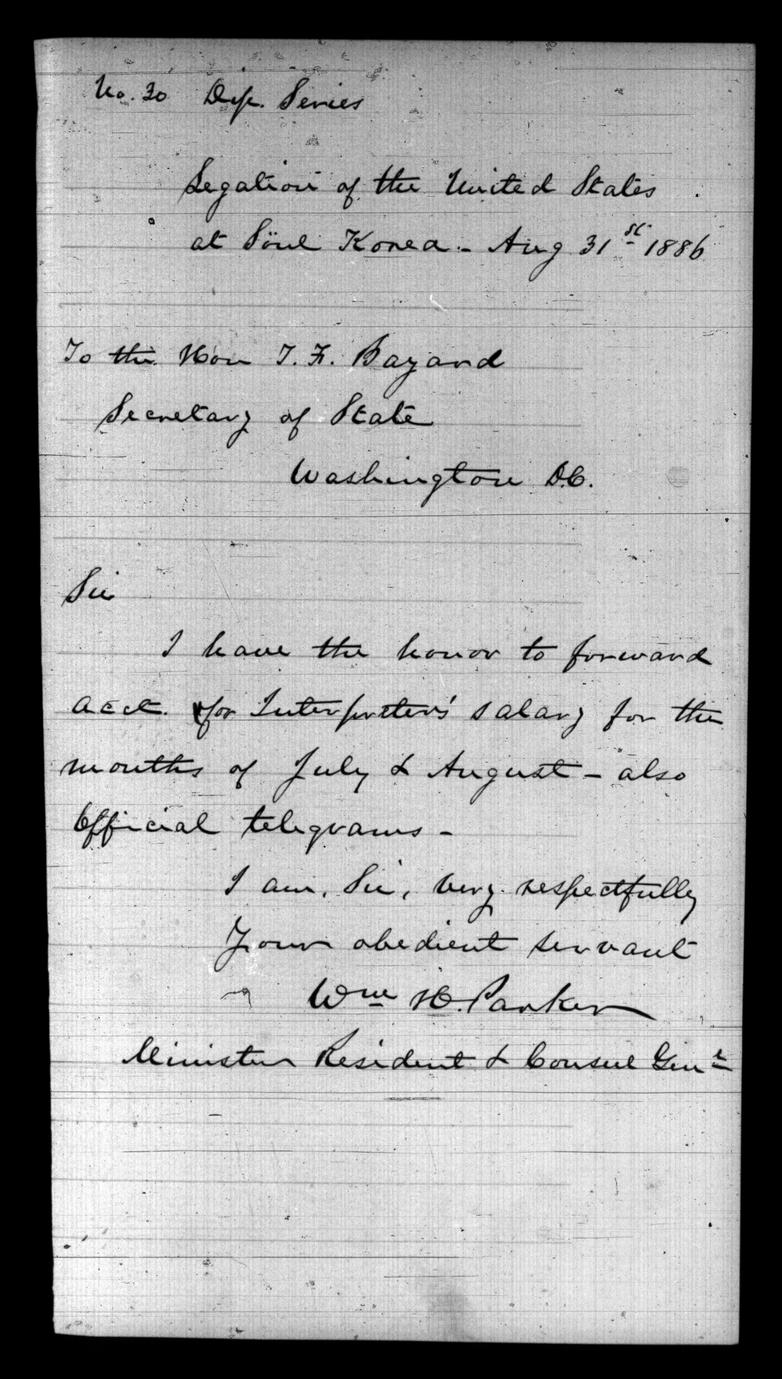 No. 30 Dip. Series
Legation of the United States
at Söul Korea - Aug 31st 1886
To the Hon T. F. Bayard
Secretary of State
Washington D.C.
Sir
I have the honor to forward
acct. for Interpreter's salary for the
months of July & August - also
Official telegrams -
I am, Sir, very respectfully
Your obedient servant
Wm H. Parker
Minister Resident & Consul Genl